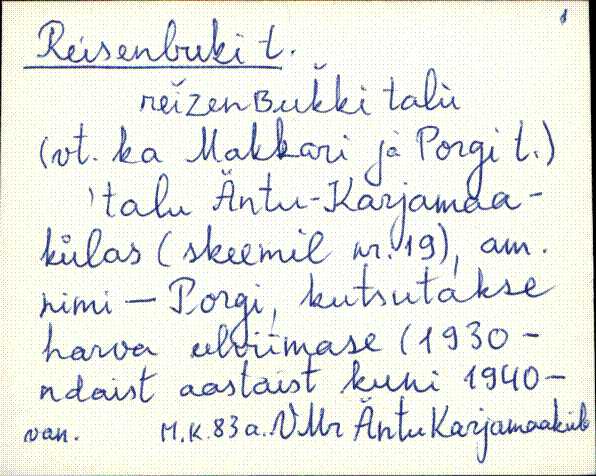 1
Reisenbuki t.
reizenBukki talu
(vt. ka Makkari ja Porgi t.)
'talu Äntu-Karjamaa-
külas (skeemil nr. 19), am.
nimi — Porgi, kutsutakse
harva eelviimase (1930-
ndaist aastaist kuni 1940-
van. M.K. 83 a. VMr Äntu Karjamaakül